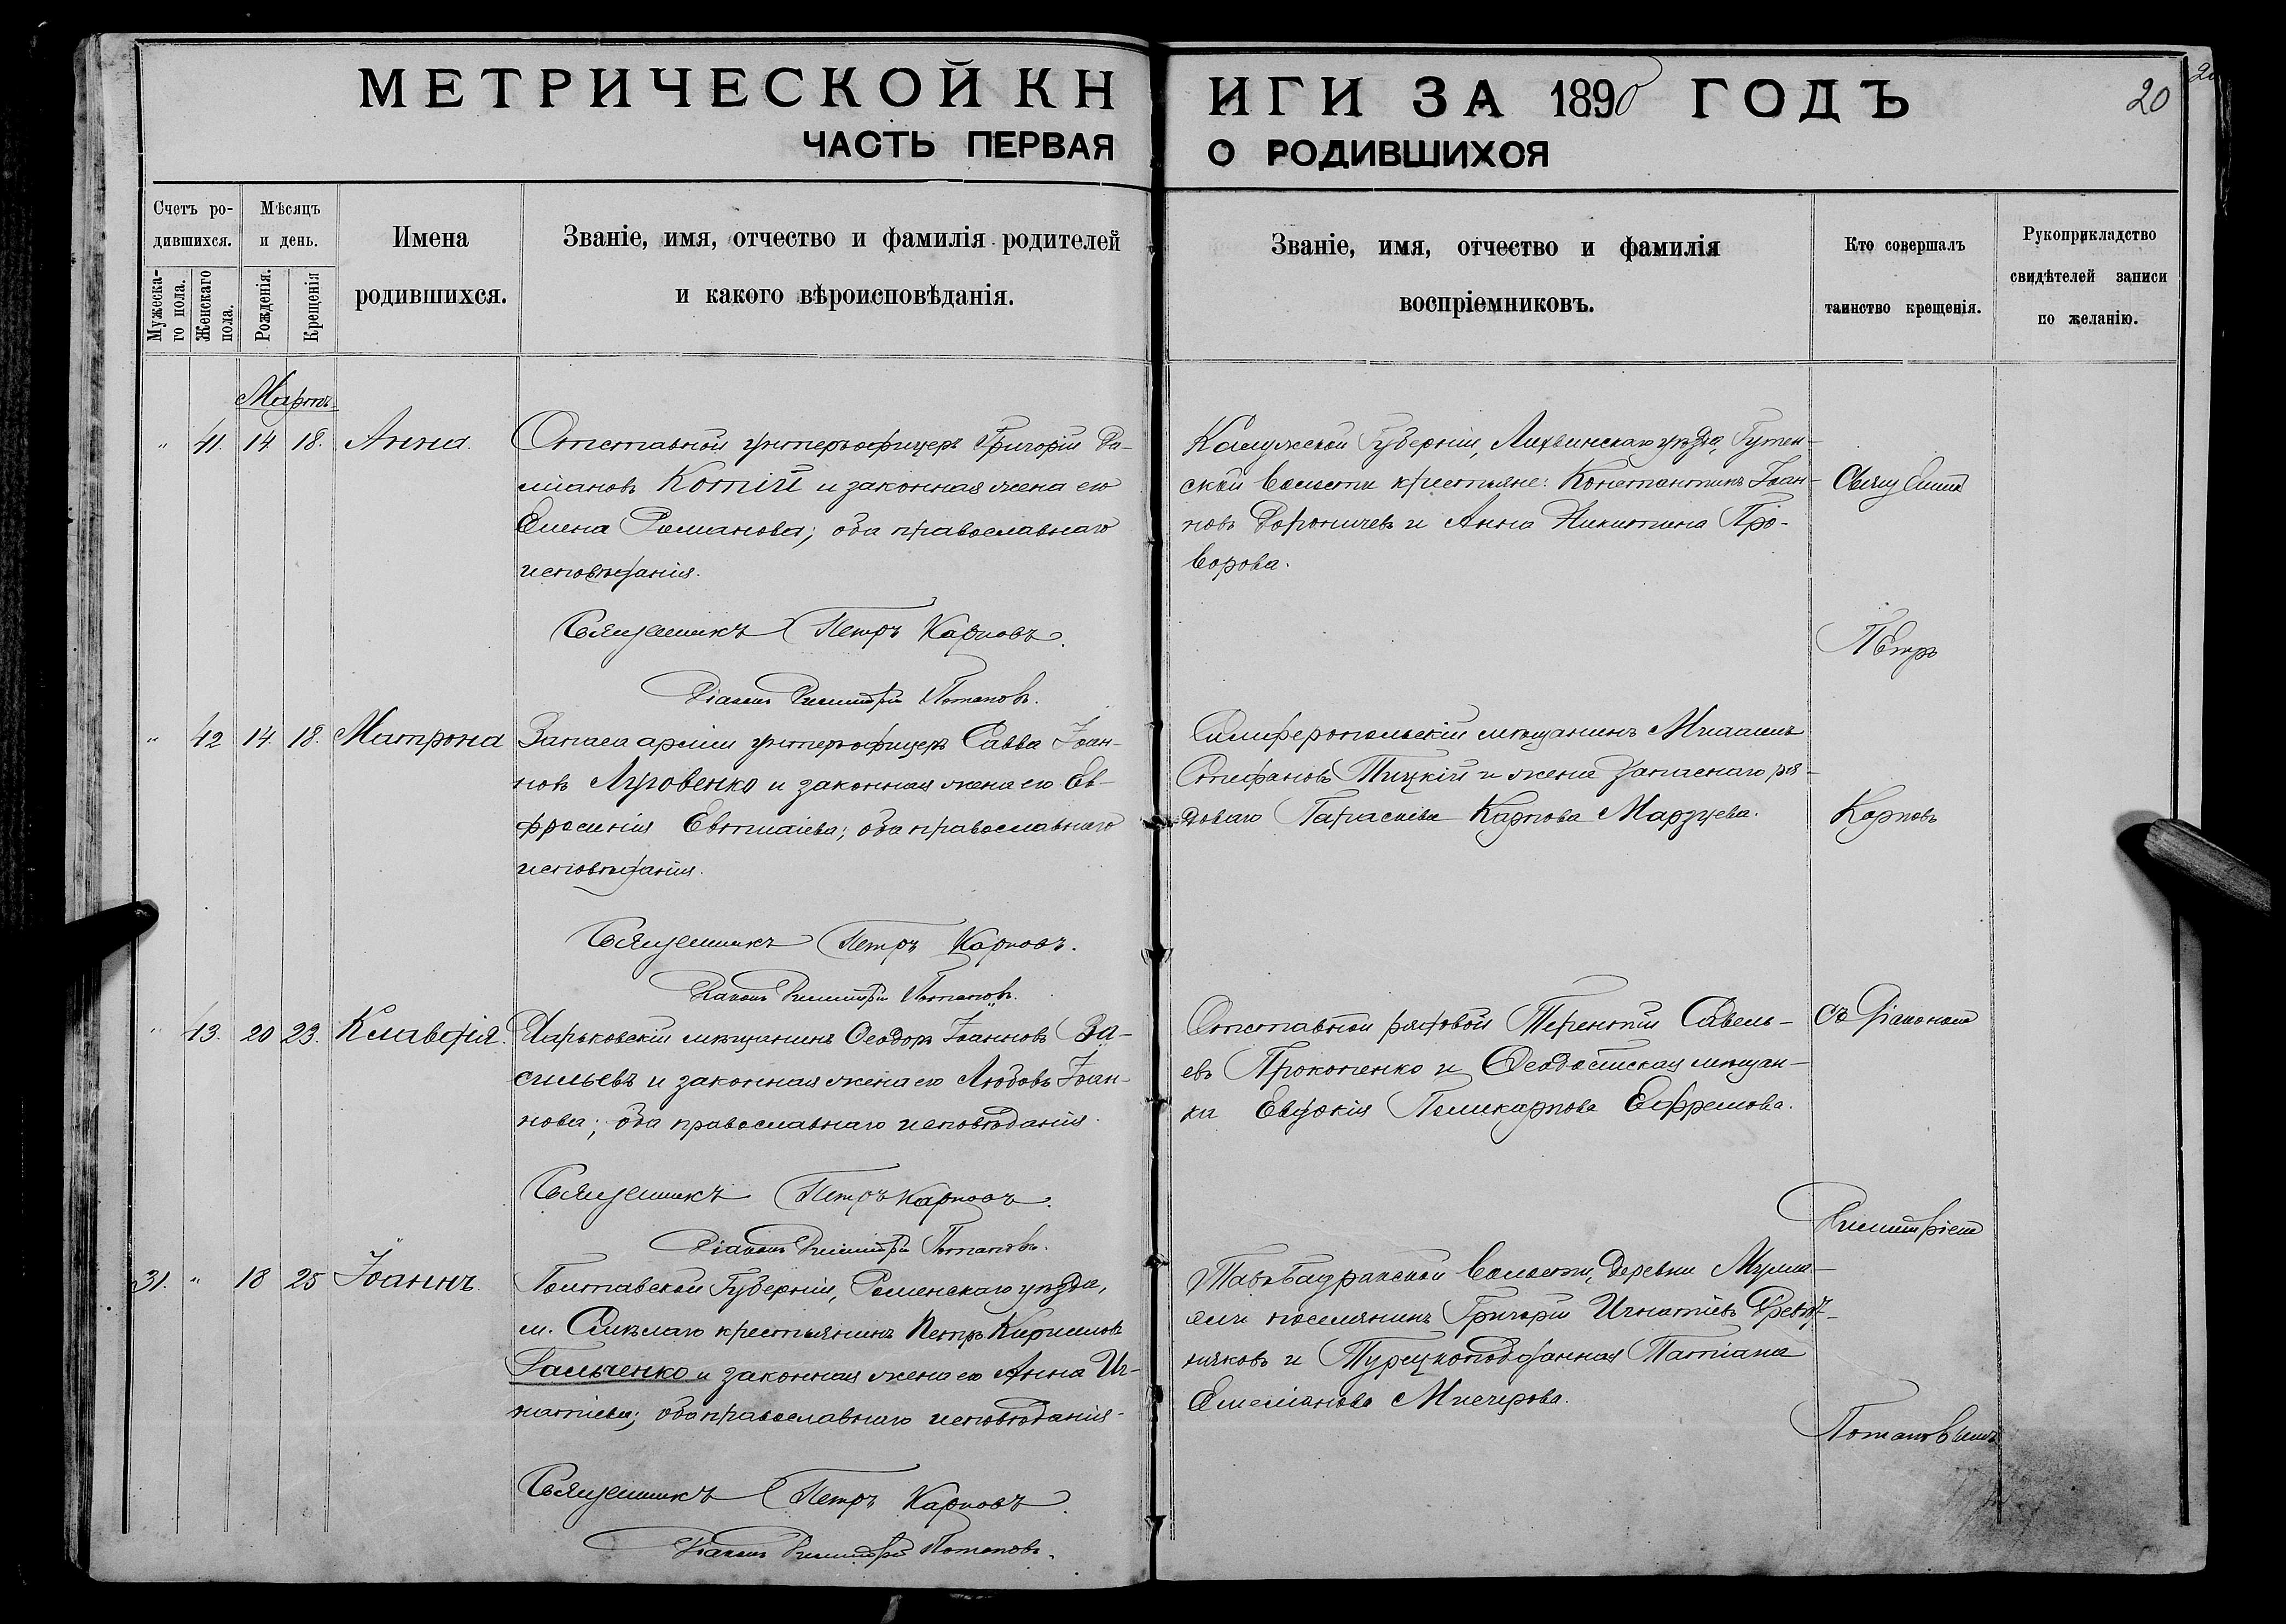 МЕТРИЧЕСКОЙ КНИГИ ЗА 1890 ГОДЪ
20
ЧАСТЬ ПЕРВАЯ О РОДИВШИХСЯ
Счетъ родившихся.
Мужескаго пола.
Женскаго пола.
Мѣсяцъ и день.
Рожденія.
Крещенія
Имена
родившихся.
Званіе, имя, отчество и фамилія родителей
и какого вѣроисповѣданія.
Званіе, имя, отчество и фамилія
воспріемниковъ.
Кто совершалъ
таинство крещенія.
Рукоприкладство
свидѣтелей записи
по желанію.
Мартъ
" 41. 14 18. Анна.
Отставной унтеръ-офицеръ Григорій Да-
міановъ Котій и законная жена его
Елена Романова; оба православнаго
исповѣданія.
Священникъ Петръ Карповъ.
Діаконъ Димитрій Потаповъ.
Калужской Губерніи, Лихвинскаго уѣзда,
ской волости крестьяне: Константинъ Іоан-
новъ Дороничевъ и Анна Никитина Про-
ворова.
" 42 14. 18. Матрона
Запаса арміи унтеръ-офицеръ Савва Іоан-
новъ Луговенко и законная жена его Ев-
фросинія Евтихіева; оба православнаго
исповѣданія.
Священникъ Петръ Карповъ.
Діаконъ Димитрій Потаповъ.
Симферопольскій мѣщанинъ Михаилъ
Стефановъ и жена запаснаго ря-
доваго Параскева Карпова
" 43. 20 23. Клавдія.
Харьковскій мѣщанинъ Ѳеодоръ Іоанновъ Ва-
сильевъ и законная жена его Любовь Іоан-
нова; оба православнаго исповѣданія.
Священникъ Петръ Карповъ.
Діаконъ Димитрій Потаповъ.
Отставной рядовой Терентій Савель-
евъ Прокопенко и Ѳеодосійская мѣщан-
ка Евдокія Поликарпова Ефремова.
31. " 18 25 Іоаннъ.
Полтавской Губерніи, Роменскаго уѣзда,
м. Смѣлаго крестьянинъ Петръ Кирилловъ
Гальченко и законная жена его Анна Иг-
натіева; оба православнаго исповѣданія.
Священникъ Петръ Карповъ.
Діаконъ Димитрій Потаповъ.
волости, деревни
поселянинъ Григорій Игнатіевъ
и Турецкоподданная Татіана
Емеліанова
Священникъ
Петръ
Карповъ
съ діакономъ
Димитріемъ
Потаповымъ